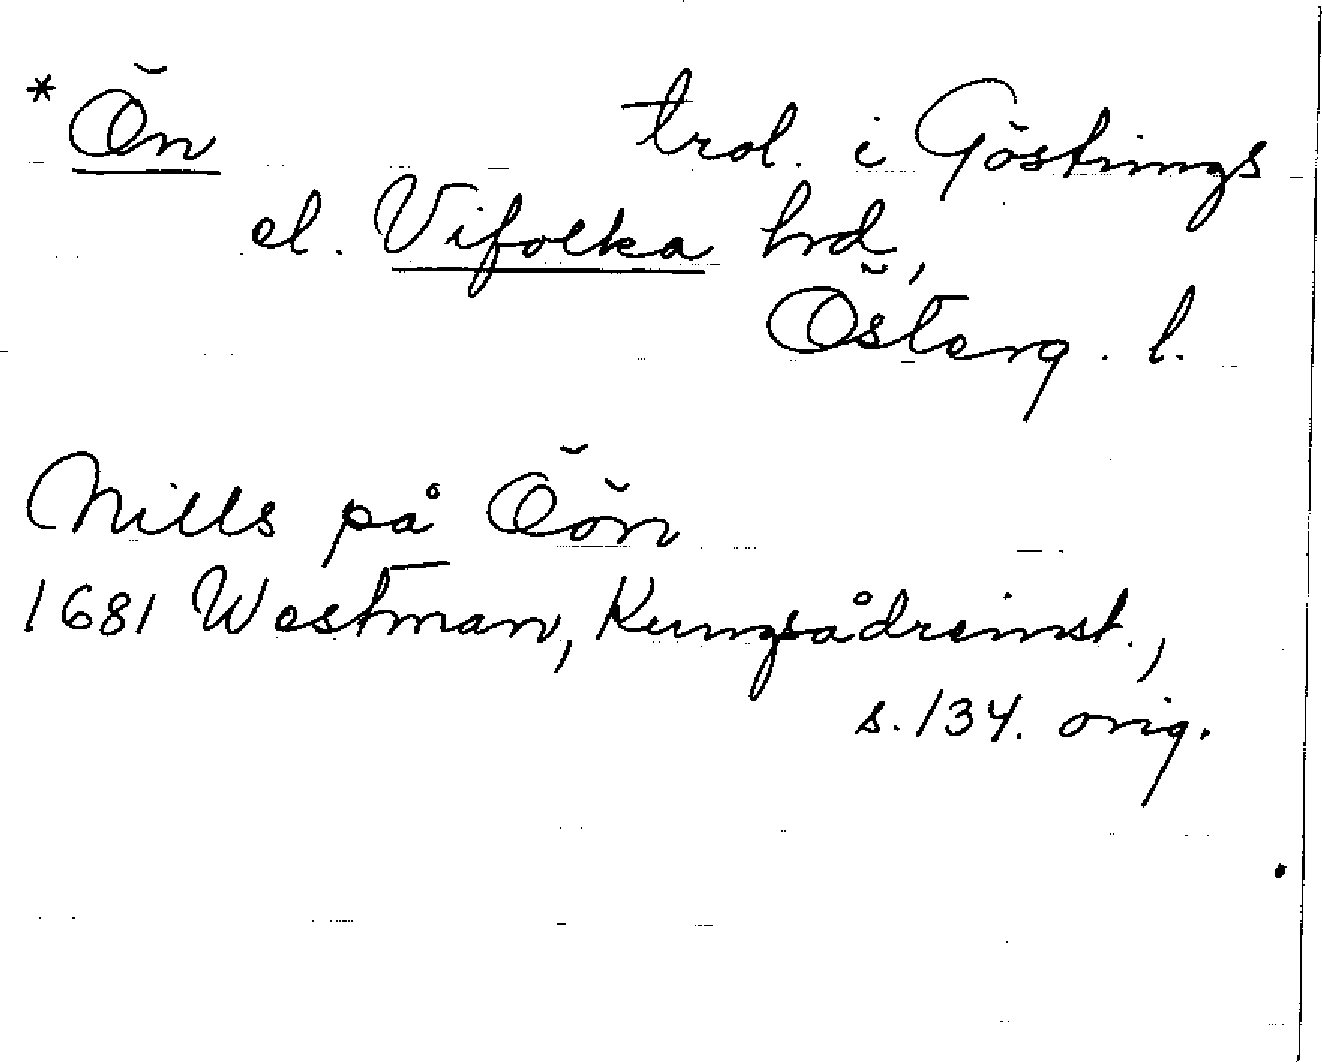 * Ön trol. i Göstrings
el. Vifolka hrd,
Österg. l.
Nills på Öön
1681 Westman, Kungsådreinst.,
s. 134. orig.